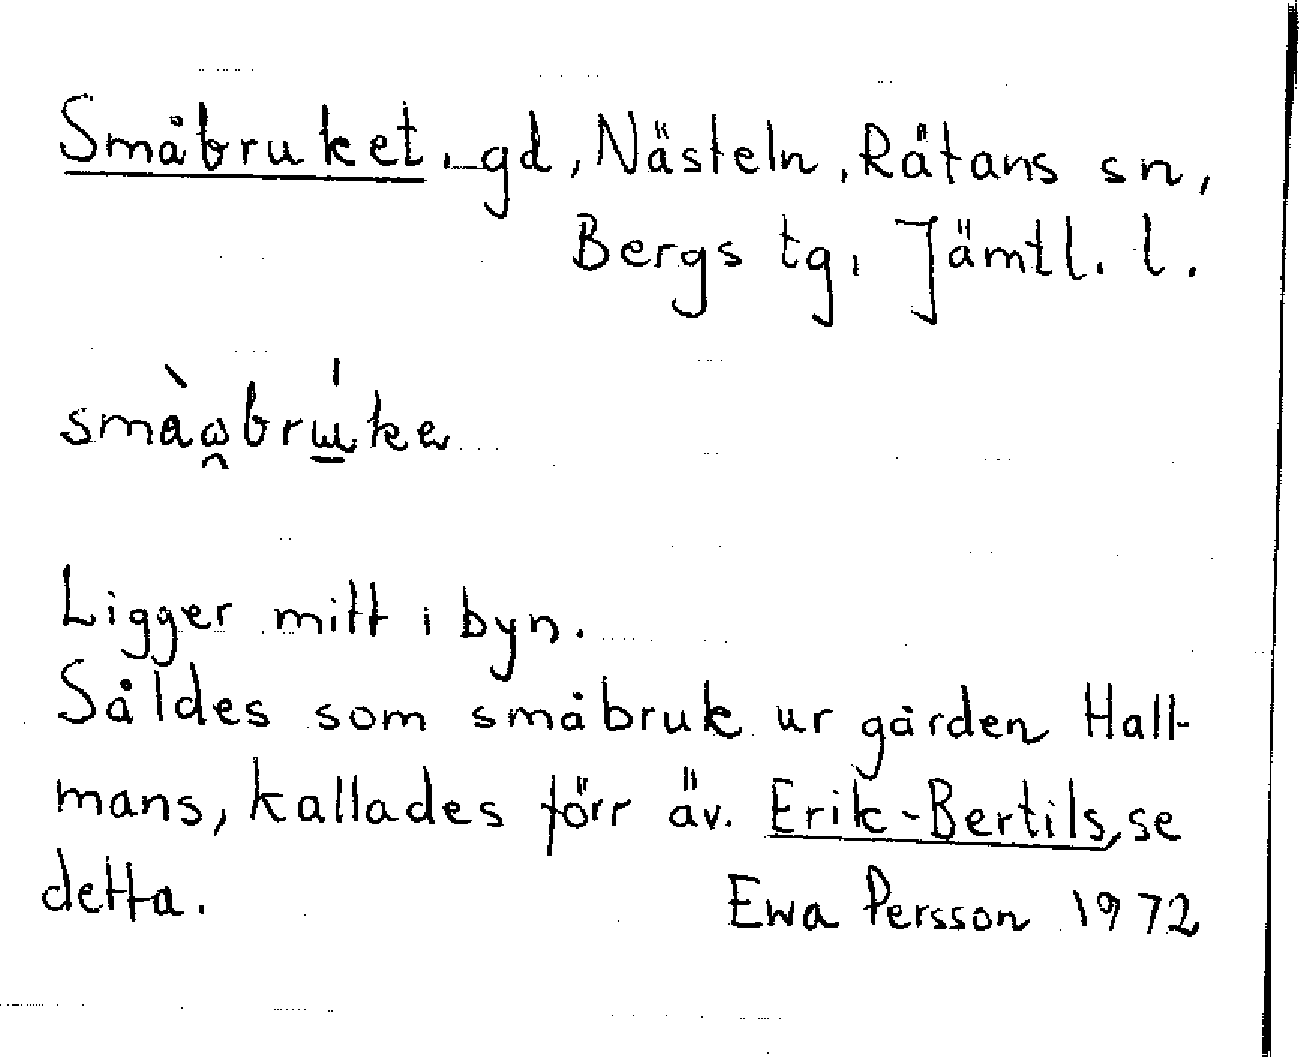 Småbruket, gd, Nästeln, Råtans sn,
Bergs tg, Jämtl. l.
Ligger mitt i byn.
Såldes som småbruk ur gården Hall-
mans, kallades förr äv. Erik-Bertils, se
detta. Ewa Persson 1972